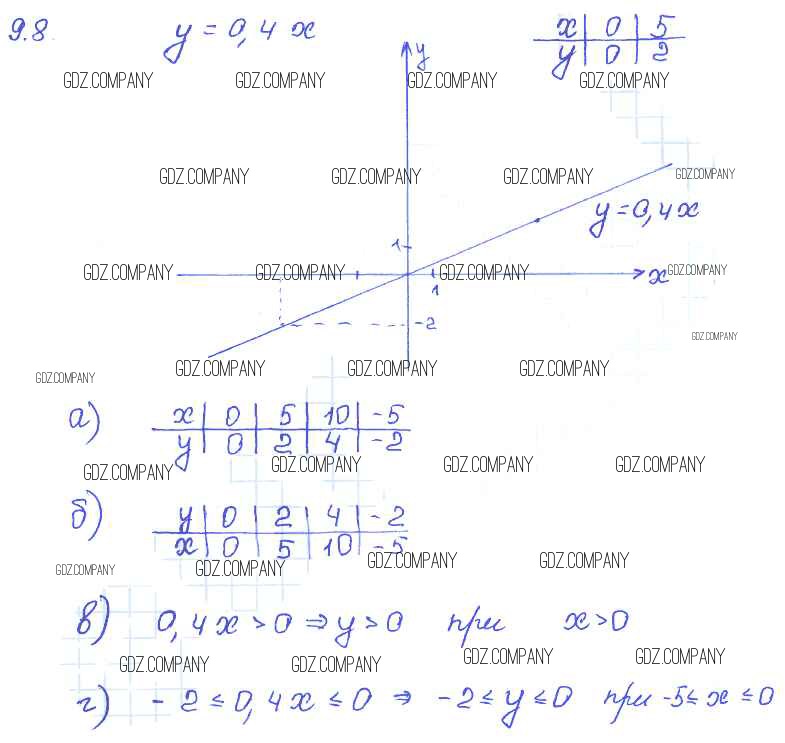 9.8. y = 0,4 x
x | 0 | 5
y | 0 | 2
GDZ.COMPANY GDZ.COMPANY GDZ.COMPANY GDZ.COMPANY
y
GDZ.COMPANY GDZ.COMPANY GDZ.COMPANY GDZ.COMPANY
y = 0,4x
1
GDZ.COMPANY GDZ.COMPANY GDZ.COMPANY x GDZ.COMPANY
1
-2
GDZ.COMPANY
GDZ.COMPANY GDZ.COMPANY GDZ.COMPANY GDZ.COMPANY
а) x | 0 | 5 | 10 | -5
y | 0 | 2 | 4 | -2
GDZ.COMPANY GDZ.COMPANY GDZ.COMPANY GDZ.COMPANY
б) y | 0 | 2 | 4 | -2
x | 0 | 5 | 10 | -5
GDZ.COMPANY GDZ.COMPANY GDZ.COMPANY GDZ.COMPANY
в) 0,4x > 0 ⇒ y > 0 при x > 0
GDZ.COMPANY GDZ.COMPANY GDZ.COMPANY GDZ.COMPANY
г) - 2 ≤ 0,4x ≤ 0 ⇒ -2 ≤ y ≤ 0 при -5 ≤ x ≤ 0